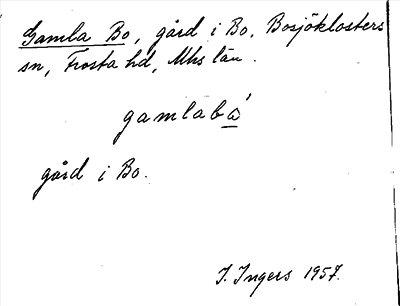 Gamla Bo, gård i Bo, Bosjöklosters
sn, Frosta hd, Mhs län.
gamlabǻ
gård i Bo.
I. Ingers 1957.